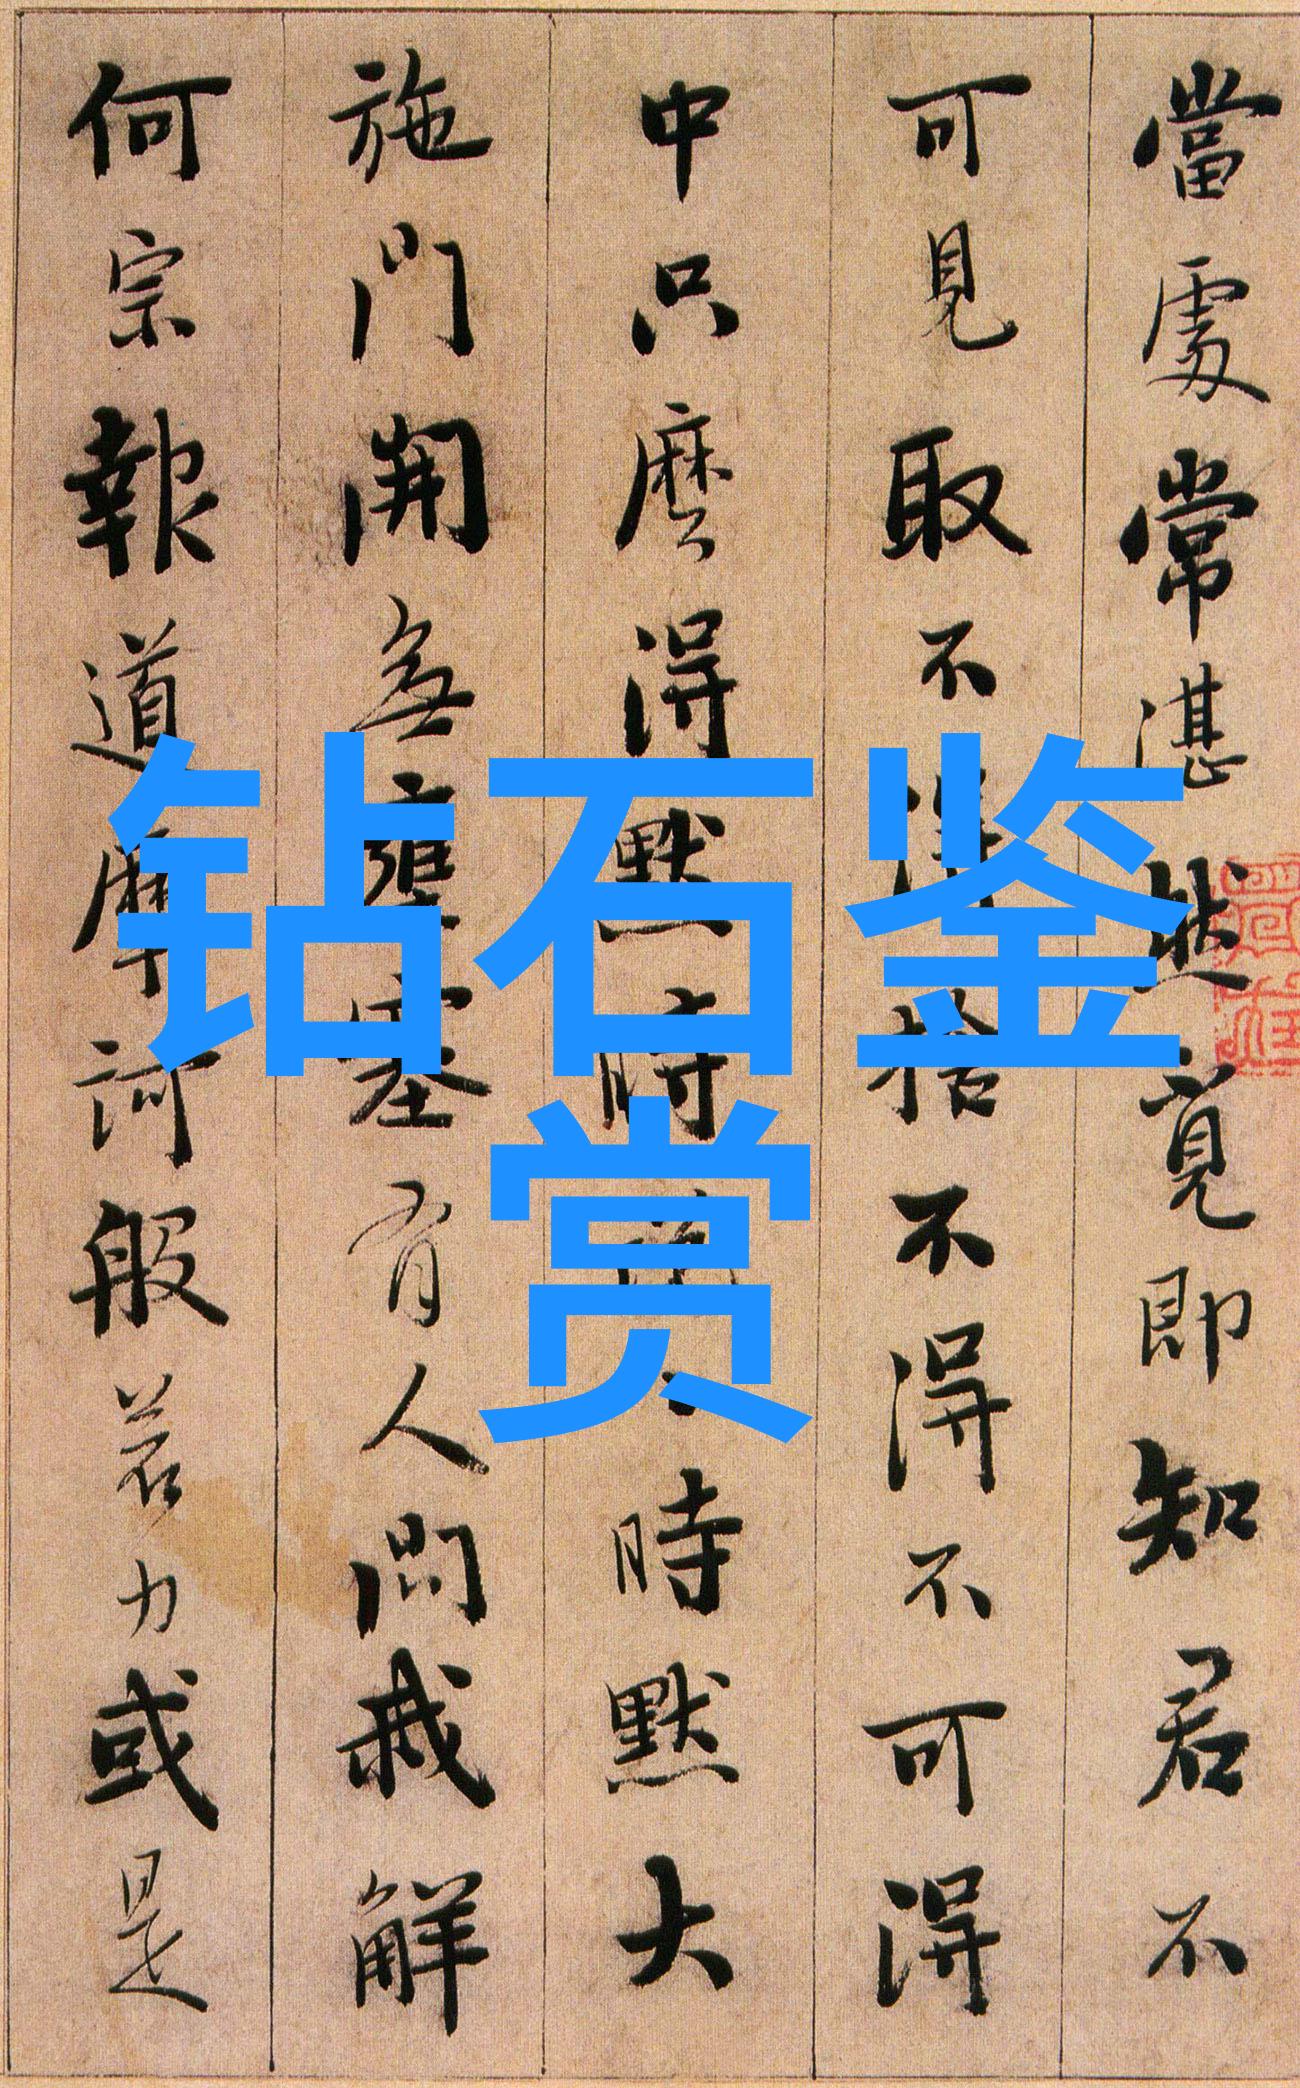 當處常湛然覓即知君不
可見取不得捨不得不可得
中只麼得默時說說時默大
施門開無壅塞有人問我解
何宗報道摩訶般若力或是
钻石鉴
赏